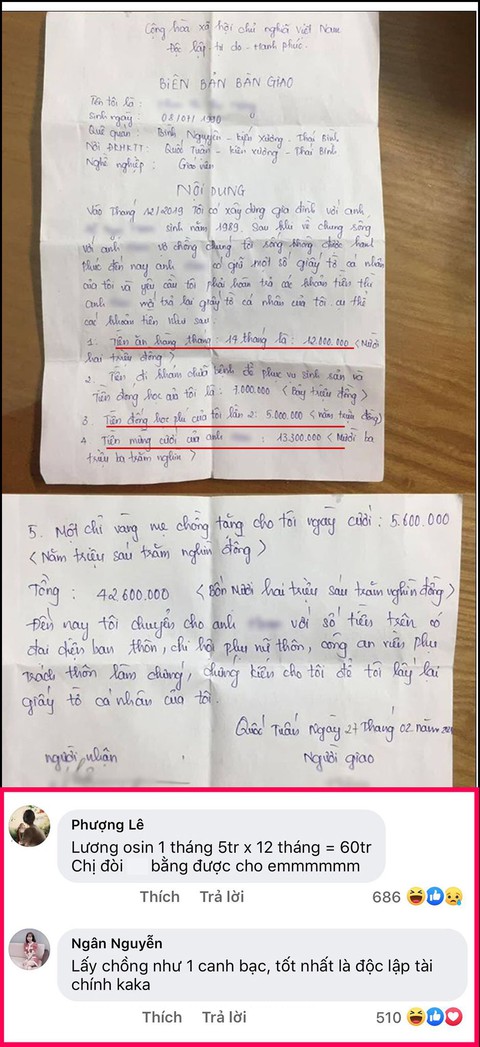 Cộng hòa xã hội chủ nghĩa Việt Nam
Độc lập - tự do - Hạnh phúc.
BIÊN BẢN BÀN GIAO
Tên tôi là :
Sinh ngày : 08/01/1990
Quê quán : Bình Nguyên - Kiến Xương - Thái Bình
Nơi ĐKHKTT: Quốc Tuấn - Kiến xương - Thái Bình
Nghề nghiệp : Giáo viên
NỘI DUNG
Vào Tháng 12/2019 Tôi có xây dựng gia đình với anh
sinh năm 1989. Sau khi về chung sống
với anh vợ chồng chúng tôi sống không được hạnh
phúc đến nay anh có giữ một số giấy tờ cá nhân
của tôi và yêu cầu tôi phải hoàn trả các khoản tiền thì
anh mới trả lại giấy tờ cá nhân của tôi. cụ thể
các khoản tiền như sau.
1. Tiền ăn hàng tháng : 14 tháng là : 12.000.000 < Mười
hai triệu đồng >
2. Tiền đi khám chữa bệnh để phục vụ sinh sản và
Tiền đóng học của tôi là : 7.000.000 < Bảy triệu đồng >
3. Tiền đóng học phí của tôi lần 2: 5.000.000 < năm triệu đồng>
4 Tiền mừng cưới của anh : 13.300.000 < Mười ba
triệu ba trăm nghìn >
5. Một chỉ vàng mẹ chồng tặng cho tôi ngày cưới : 5.600.000
< Năm triệu sáu trăm nghìn đồng >
Tổng : 42.600.000 < Bốn Mươi hai triệu sáu trăm nghìn đồng >
Đến nay tôi chuyển cho anh với số tiền trên có
đại diện ban thôn, chi hội phụ nữ thôn, công an viên phụ
trách thôn làm chứng, chứng kiến cho tôi để tôi lấy lại
giấy tờ cá nhân của tôi.
Quốc Tuấn Ngày 27 Tháng 02 năm
người nhận Người giao
Phượng Lê
Lương osin 1 tháng 5tr x 12 tháng = 60tr
Chị đòi bằng được cho emmmmmm
Thích Trả lời 686
Ngân Nguyễn
Lấy chồng như 1 canh bạc, tốt nhất là độc lập tài
chính kaka
Thích Trả lời 510